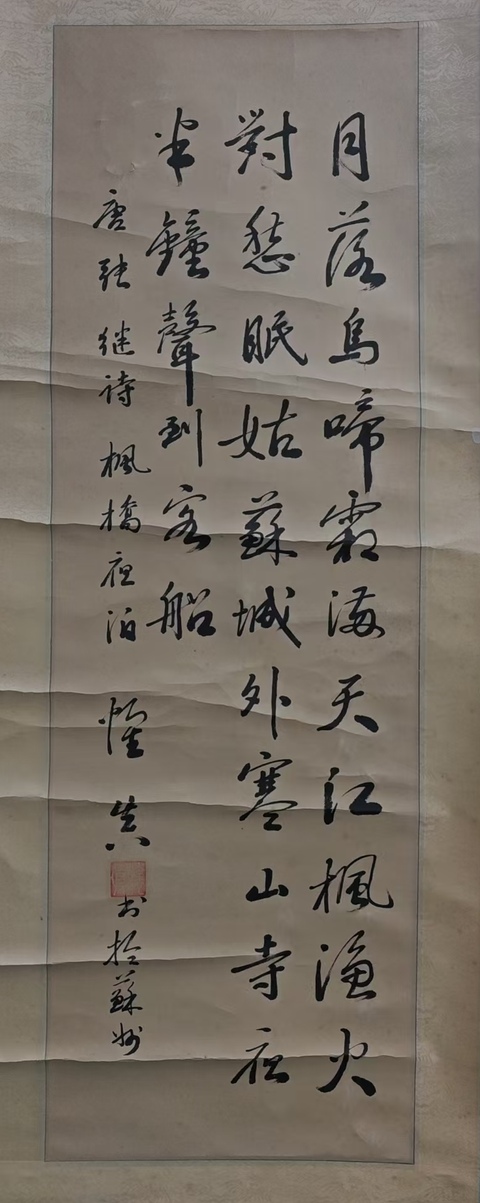 月落烏啼霜滿天江楓漁火
對愁眠姑蘇城外寒山寺夜
半鐘聲到客船
唐張继诗楓橋夜泊 惟真
书於蘇州